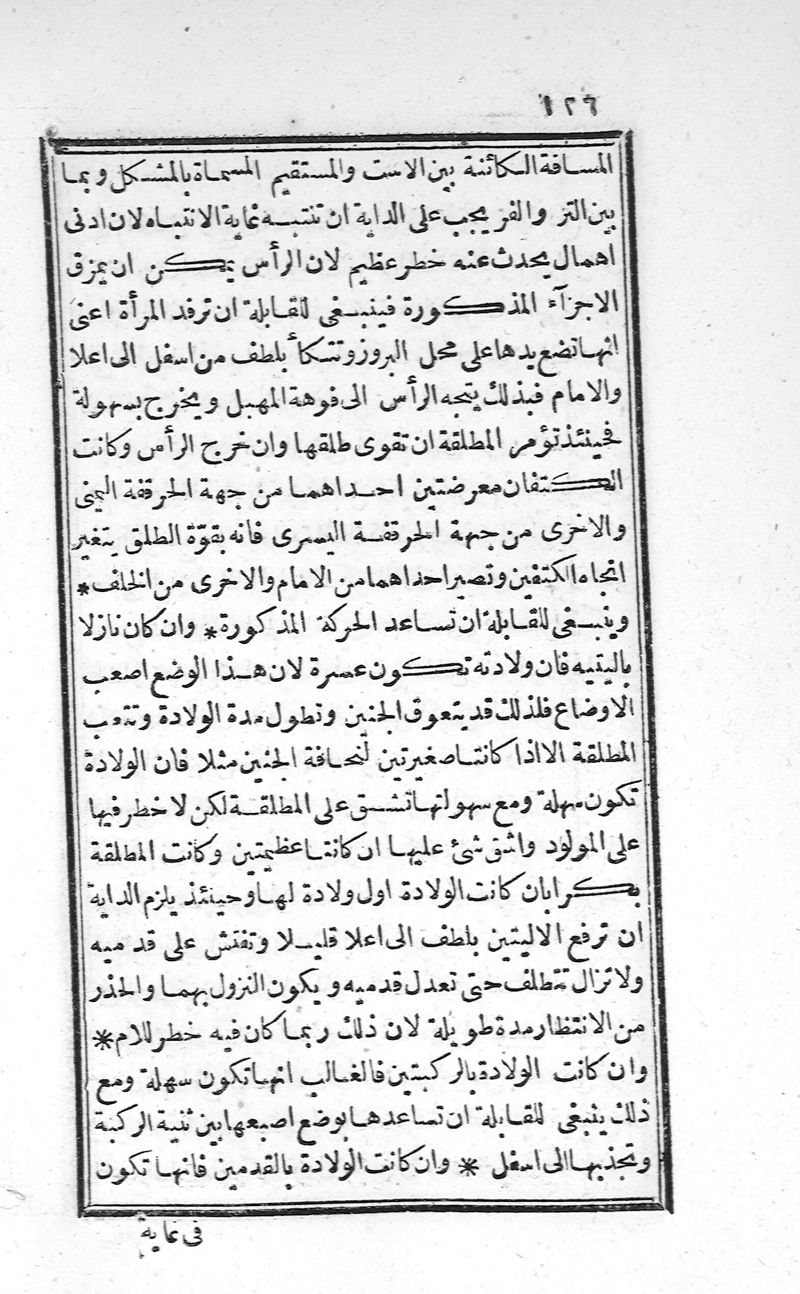 ١٢٦
المسافة الكائنة بين الاست والمستقيم المسماة بالمشكل وبما
بين التز والفر يجب على الداية ان تنتبه غاية الانتباه لان ادنى
اهمال يحدث عنه خطر عظيم لان الرأس يمكن ان يمزق
الاجزآء المذكورة فينبغى للقابلة ان ترفد المرأة اعنى
انها تضع يدها على محل البروز وتتكأ بلطف من اسفل الى اعلا
والامام فبذلك يتجه الرأس الى فوهة المهبل ويخرج بسهولة
فحينئذ تؤمر المطلقة ان تقوى طلقها وان خرج الرأس وكانت
الكتفان معرضتين احداهما من جهة الحرقفة اليمنى
والاخرى من جهة الحرقفة اليسرى فانه بقوّة الطلق يتغير
اتجاه الكتفين وتصير احداهما من الامام والاخرى من الخلف *
وينبغى للقابلة ان تساعد الحركة المذكورة * وان كان نازلا
باليتيه فان ولادته تكون عسرة لان هذا الوضع اصعب
الاوضاع فلذلك قد يتعوق الجنين وتطول مدة الولادة وتتعب
المطلقة الا اذا كانتا صغيرتين لنحافة الجنين مثلا فان الولادة
تكون سهلة ومع سهولتها تشق على المطلقة لكن لا خطر فيها
على المولود واشق شئ عليها ان كانتا عظيمتين وكانت المطلقة
بكرا بان كانت الولادة اول ولادة لها وحينئذ يلزم الداية
ان ترفع الاليتين بلطف الى اعلا قليلا وتفتش على قدميه
ولا تزال تتطلف حتى تعدل قدميه ويكون النزول بهما والحذر
من الانتظار مدة طويلة لان ذلك ربما كان فيه خطر للام *
وان كانت الولادة بالركبتين فالغالب انها تكون سهلة ومع
ذلك ينبغى للقابلة ان تساعدها بوضع اصبعها بين ثنية الركبة
وتجذبها الى اسفل * وان كانت الولادة بالقدمين فانها تكون
فى غاية